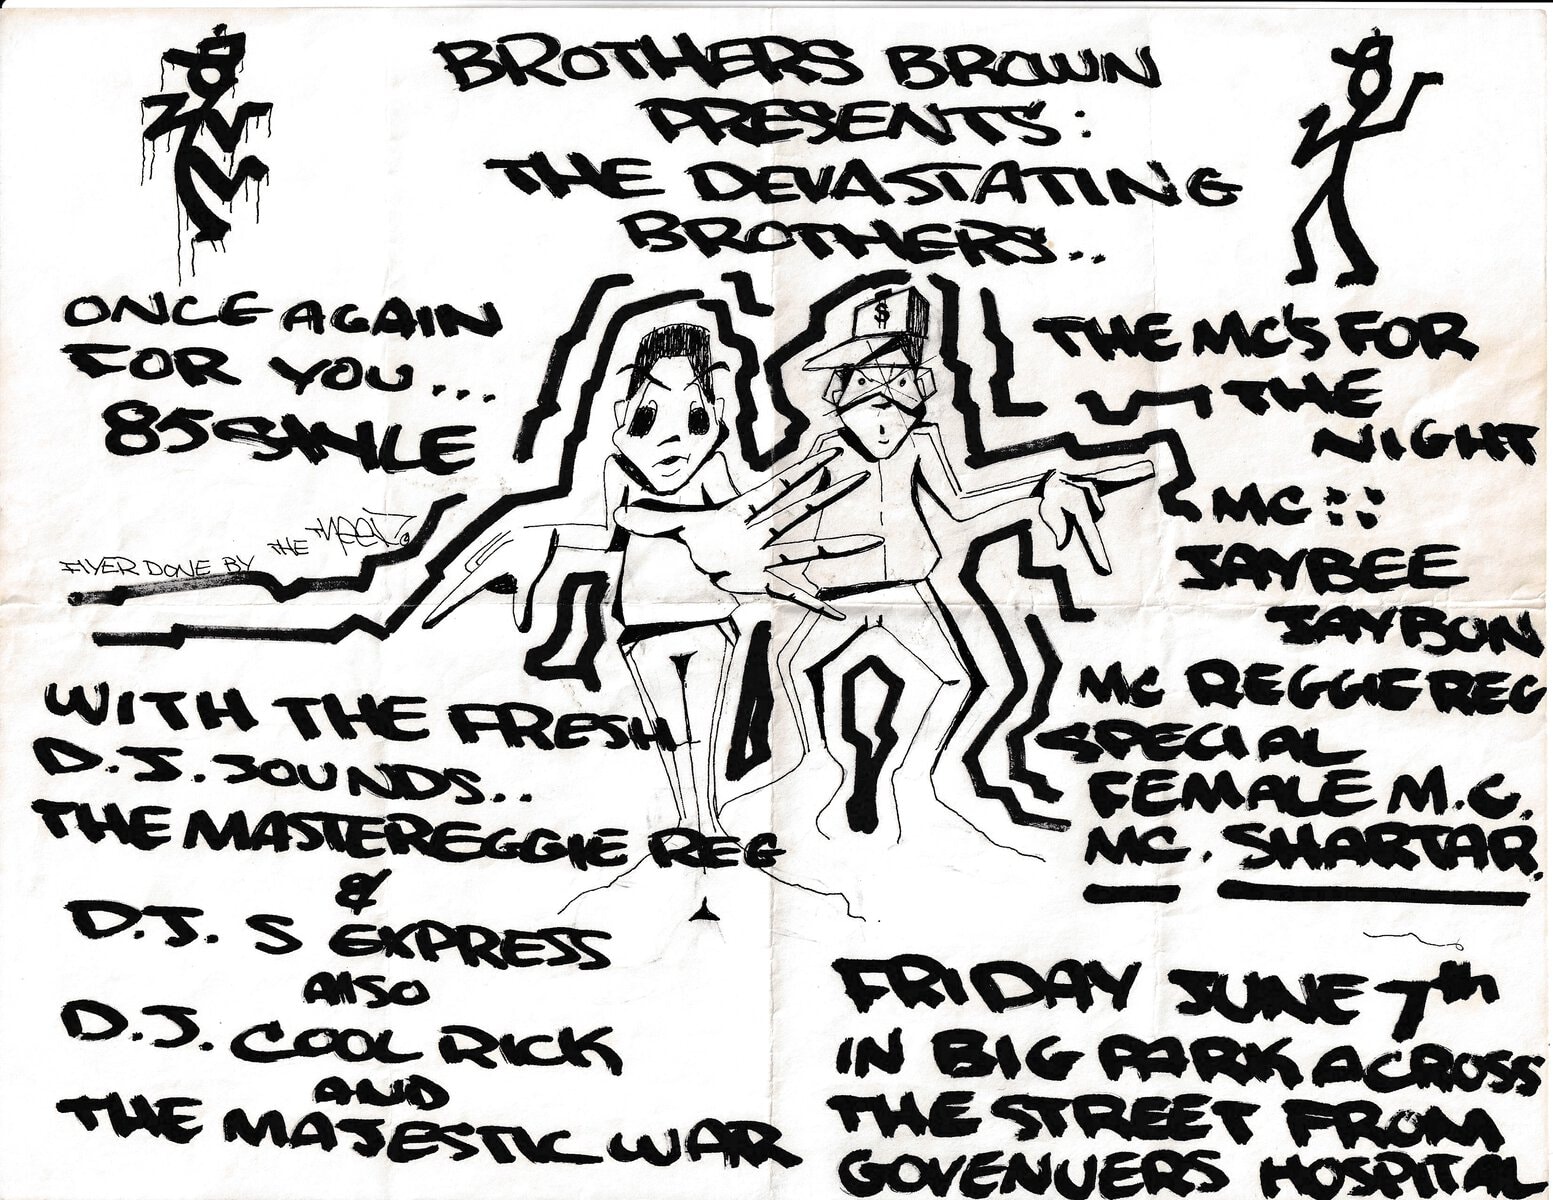 BROTHERS BROWN
PRESENTS:
THE DEVASTATING
BROTHERS..
ONCE AGAIN
FOR YOU...
85 STYLE
FLYER DONE BY THE
$
THE MC'S FOR
THE
NIGHT
MC ::
JAYBEE
JAYBON
MC REGGIE REG
SPECIAL
FEMALE M.C.
MC. SHARTAR.
WITH THE FRESH
D.J. SOUNDS..
THE MASTEREGGIE REG
&
D.J. S EXPRESS
ALSO
D.J. COOL RICK
AND
THE MAJESTIC WAR
FRIDAY JUNE 7th
IN BIG PARK ACROSS
THE STREET FROM
GOVENUERS HOSPITAL